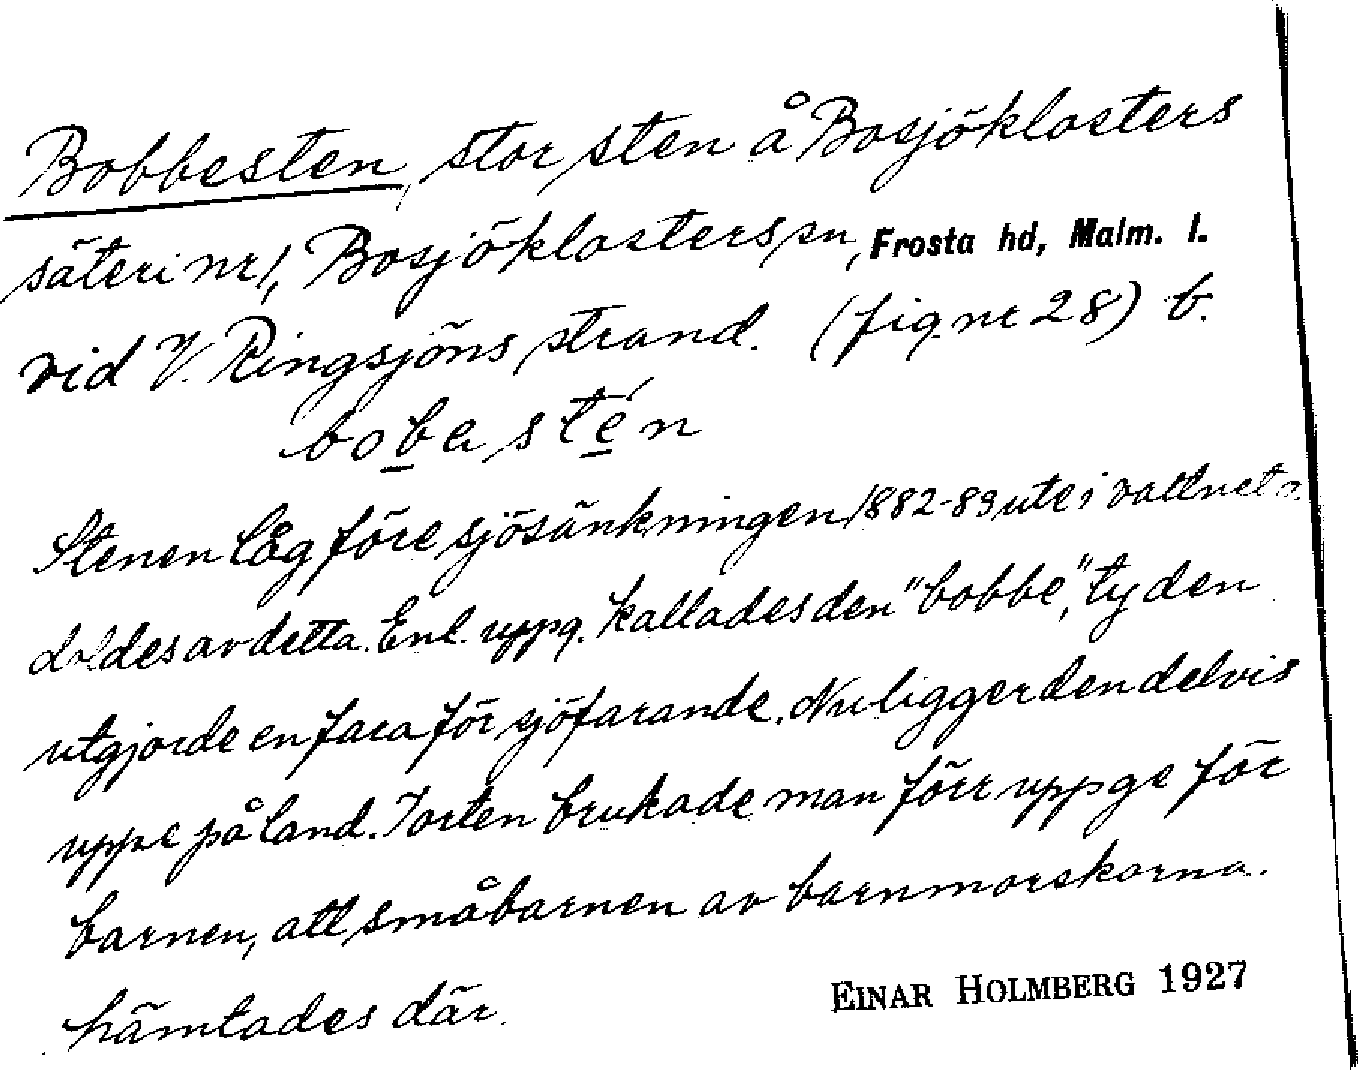 Bobbesten, stor sten å Bosjöklosters
säteri nr 1, Bosjöklosters sn, Frosta hd, Malm. l.
vid V. Ringsjöns strand. (fig nr 28) b.
bobastén
Stenen låg före sjösänkningen 1882-83 ute i vattnet o.
doldes av detta. Enl. uppg. kallades den "bobbe", ty den
utgjorde en fara för sjöfarande. Nu ligger den delvis
uppe på land. I orten brukade man förr uppge för
barnen, att småbarnen av barnmorskorna.
hämtades där.
EINAR HOLMBERG 1927